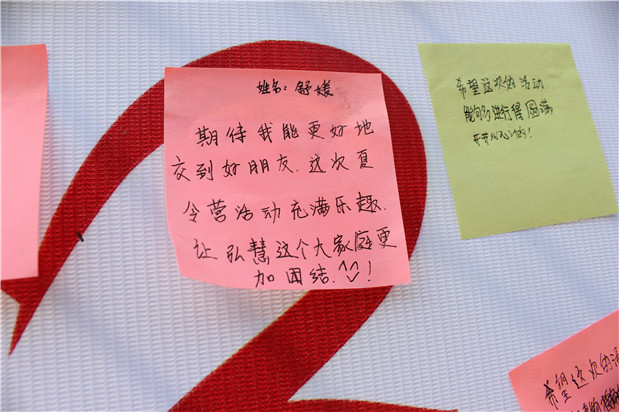 姓名：舒媛
期待我能更好地
交到好朋友.这次夏
令营活动充满乐趣.
让弘慧这个大家庭更
加团结.^^!
希望这次的活动
能够进行得圆满
开开心心的!
希望这次的活